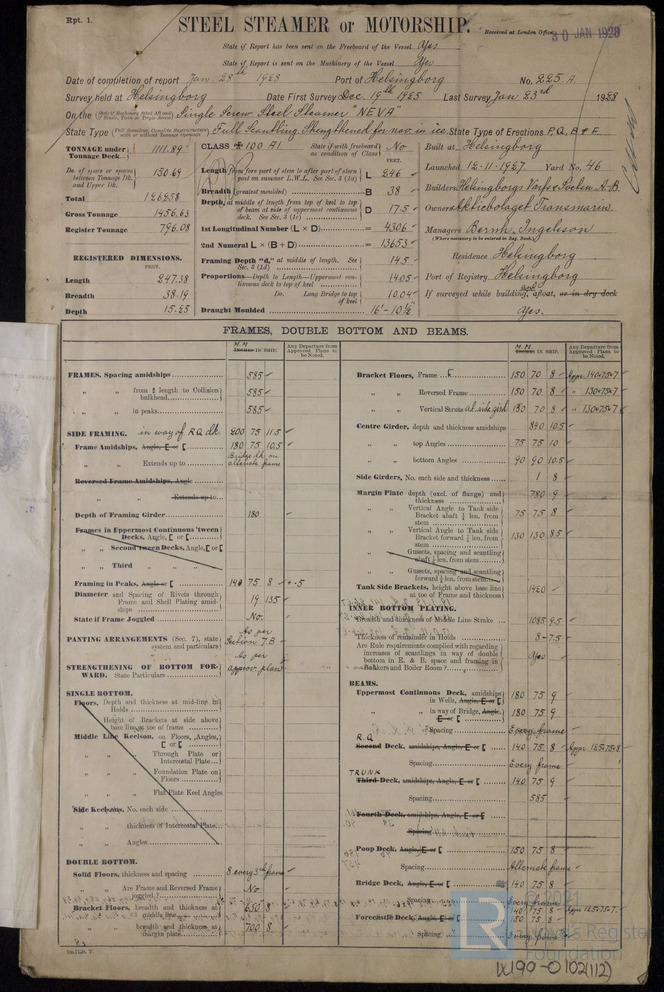 Rpt. 1.
STEEL STEAMER or MOTORSHIP.
Received at London Office 30 JAN 1928
State if Report has been sent on the Freeboard of the Vessel Yes
State if Report is sent on the Machinery of the Vessel Yes
Date of completion of report Jan. 28th 1928 Port of Helsingborg No. 225 A
Survey held at Helsingborg Date First Survey Dec. 19th 1925 Last Survey Jan 23rd 1928
On the Single Screw Steel Steamer "NEVA"
State Type Full Scantling. Strengthened for nav. in ice. State Type of Erections P.Q.B & F.
TONNAGE under Tonnage Deck 1111.89
Do. of space or spaces between Tonnage Dk. and Upper Dk. 150.69
Total 1262.58
Gross Tonnage 1456.63
Register Tonnage 796.08
REGISTERED DIMENSIONS.
FEET.
Length 247.38
Breadth 38.19
Depth 15.25
CLASS 100 A1 State if with freeboard as condition of Class No
FEET.
Length from fore part of stem to after part of stern post on summer L.W.L. See Sec. 3 (1a) L 246
Breadth greatest moulded B 38
Depth, at middle of length from top of keel to top of beam at side of uppermost continuous deck. See Sec. 3 (1c) D 17.5
1st Longitudinal Number (L × D) = 4306
2nd Numeral L × (B + D) = 13653
Framing Depth "d," at middle of length. See Sec. 3 (1d) 14.5
Proportions—Depth to Length—Uppermost continuous deck to top of keel 14.05
Do. Long Bridge to top of keel 10.04
Draught Moulded 16'-10½"
Built at Helsingborg
Launched 12-11-1927. Yard No. 46
Builders Helsingborgs Varfs A.-B.
Owners Aktiebolaget Transmarin.
Managers Bernh. Ingelsson
(Where necessary to be entered in Reg. Book.)
Residence Helsingborg
Port of Registry Helsingborg
If surveyed while building, afloat, or in dry dock
Yes.
FRAMES, DOUBLE BOTTOM AND BEAMS.
M.M IN SHIP.
Any Departure from Approved Plans to be Noted.
FRAMES, Spacing amidships 585
" " from ⅕ length to Collision bulkhead 585
" " in peaks 585
SIDE FRAMING. in way of R.Q dk 200 75 11.5
Frame Amidships, Angle, E or [ 180 75 10.5
" " Extends up to Bridge dk on alternate frame
Reversed Frame Amidships, Angle
" " Extends up to
Depth of Framing Girder 180
Frames in Uppermost Continuous 'tween Decks, Angle, E or [
" Second 'tween Decks, Angle, E or [
" Third " " "
Framing in Peaks, Angle or [ 140 75 8 +.5
Diameter and Spacing of Rivets through Frame and Shell Plating amidships 19 135
State if Frame Joggled No.
PANTING ARRANGEMENTS (Sec. 7), state system and particulars As per Section 7.B
STRENGTHENING OF BOTTOM FORWARD. State Particulars As per approv. plan
SINGLE BOTTOM.
Floors, Depth and thickness at mid-line in Holds
Height of Brackets at side above base line at toe of frame
Middle Line Keelson, on Floors, Angles, E or [
" " Through Plate or Intercostal Plate
" " Foundation Plate on Floors
" " Flat Plate Keel Angles
Side Keelsons, No. each side
" " thickness of Intercostal Plate
" " Angles
DOUBLE BOTTOM.
Solid Floors, thickness and spacing 8 every 3rd frame
" " Are Frame and Reversed Frame joggled? No
Bracket Floors, breadth and thickness at middle line 650 8
" " breadth and thickness at margin plate 700 8
M.M IN SHIP.
Any Departure from Approved Plans to be Noted.
Bracket Floors, Frame [ 150 70 8 Appr. 140×75×7
" " Reversed Frame 150 70 8 " 130×75×7
" " Vertical Struts at side gird 180 70 8 " 130×75×7
Centre Girder, depth and thickness amidships 890 10.5
" " top Angles 75 75 10
" " bottom Angles 90 90 10.5
Side Girders, No. each side and thickness 1 8
Margin Plate depth (excl. of flange) and thickness 780 9
" " Vertical Angle to Tank side Bracket abaft ¼ len. from stem 75 75 8
" " Vertical Angle to Tank side Bracket forward ¼ len. from stem 130 130 8.5
" " Gussets, spacing and scantling abaft ¼ len. from stem
" " Gussets, spacing and scantling forward ¼ len. from stem
Tank Side Brackets, height above base line at toe of Frame and thickness 1420
INNER BOTTOM PLATING.
Breadth and thickness of Middle Line Strake 1085 9.5
Thickness of remainder in Holds 8-7.5
Are Rule requirements complied with regarding increases of scantlings in way of double bottom in E. & B. space and framing in Bunkers and Boiler Room? Yes
BEAMS.
Uppermost Continuous Deck, amidships in Wells, Angle, E or [ 180 75 9
" " in way of Bridge, Angle, E or [ 180 75 9
Spacing Every frame
R.Q
Second Deck, amidships, Angle, E or [ 140 75 8 Appr 165×75×8
Spacing Every frame
TRUNK
Third Deck, amidships, Angle, E or [ 140 75 9
Spacing 585
Fourth Deck, amidships, Angle, E or [
Spacing
Poop Deck, Angle, E or [ 150 75 8
Spacing Alternate frame
Bridge Deck, Angle, E or [ 140 75 8
Spacing Every frame
Forecastle Deck, Angle, E or [ 140 75 8 Appr 165×75×7
150 75 8
Spacing
LR
© 2021
Lloyd's Register
Foundation
W190-0102(1/2)